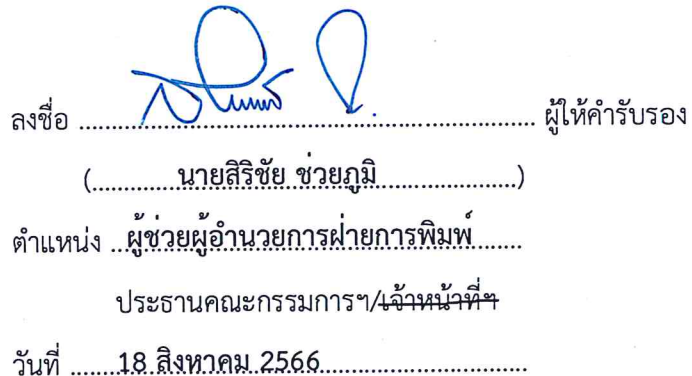 ลงชื่อ ........................................................ ผู้ให้คำรับรอง
(............นายสิริชัย ช่วยภูมิ....................)
ตำแหน่ง ..ผู้ช่วยผู้อำนวยการฝ่ายการพิมพ์......
ประธานคณะกรรมการฯ/เจ้าหน้าที่ฯ
วันที่ .......18 สิงหาคม 2566..............................